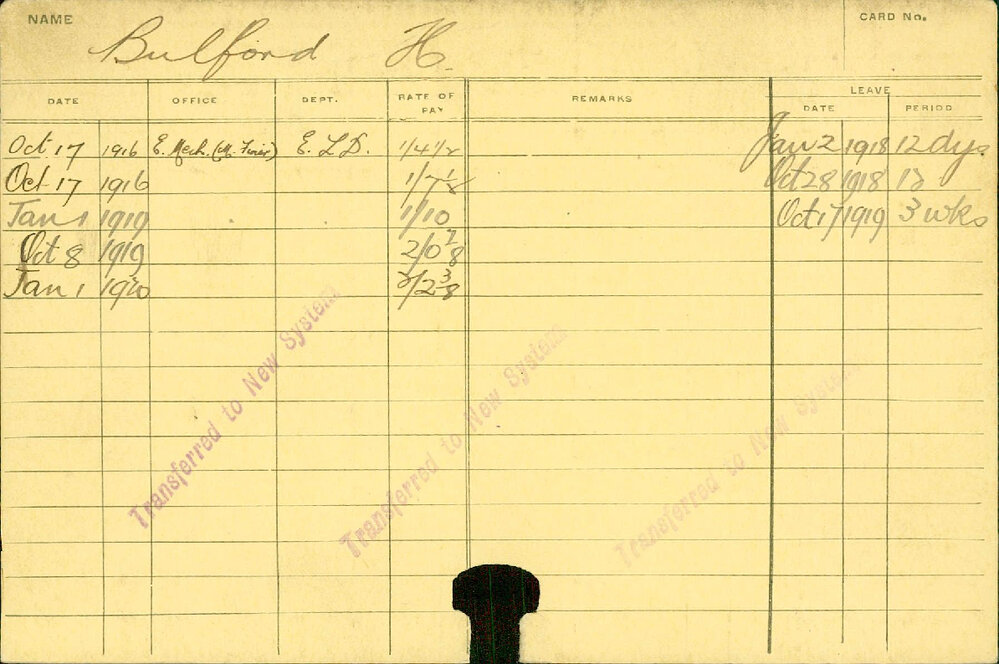 NAME
CARD No.
Bulford H.
DATE OFFICE DEPT. RATE OF PAY REMARKS LEAVE DATE PERIOD
Oct. 17 1916 E. Mech. E. L D. 1/4½ Jan 2 1918 12 dys.
Oct 17 1916 1/7⅛ Oct 28 1918 12
Jan 1 1919 1/10 Oct 17 1919 3 wks
Oct 8 1919 2/0⅞
Jan 1 1920 2/2⅜
Transferred to New System
Transferred to New System
Transferred to New System